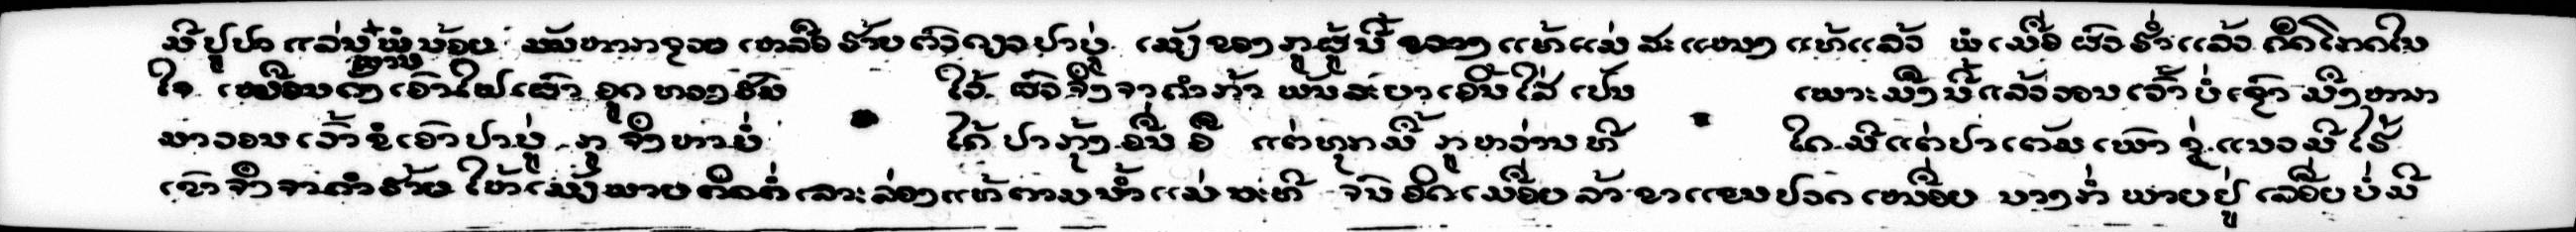 ມີປູປາ ແລ່ນ ນ້ອຍ ເຫລືອຮ້າຍ ປາປູ່ ເມັຽຂອງກູຜູ້ນີ້ ຂວາງແທ້ແມ່ສະແໜງ ແທ້ແລ້ວ ເມື່ອຜົວຮ່ຳແລ້ວ ກຶດໂກດໃນ
ໃຈ ເໝືອນດັ່ງເອົາໄຟເຜົາ ອູກທວງຮົນ ໃຈ້ ຜົວຈິ່ງຈາຄຳກ້າ ພັນລະຍາເອີ້ນໃສ່ ເປັນ ເພາະມຶງນີ້ແລ້ວອວນເຈົ້າບໍ່ເຊົາ ມຶງຫານາ
ມາວອນເຈົ້າຂໍເອົາປາປູ່ ກູຈິ່ງຫາບໍ່ ໄດ້ ປາກຸ້ງອື່ນອີ ແຕ່ທຸກມື້ ກູຫວ່ານຫີ ໃດ ມີແຕ່ປາເຕັມ ຊູ່ແນວມີໄຮ້
ເຂົາຈິ່ງຈາຄຳຮ້າຍ ໃຫ້ເມັຽພາຍຕິດຕໍ່ ເລາະລ່ອງແທ້ຕາມນ້ຳແມ່ນະທີ ຈົນອິດເມື່ອຍລ້າ ຂາແຂນປວດເໝື່ອຍ ບາງກໍ່ຍາຍຢູ່ເລື້ອຍບໍ່ມີ